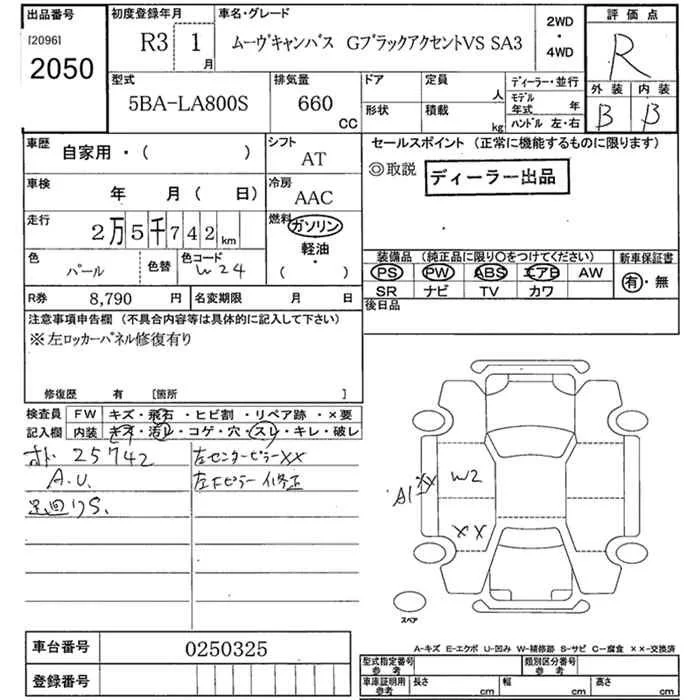 出品番号 初度登録年月 車名・グレード 2WD ・ 4WD 評価点
[2096]
2050 R3 1 月 ムーヴキャンバス GブラックアクセントVS SA3 R
型式 排気量 ドア 定員 人 ディーラー・並行 外装 内装
5BA-LA800S 660 CC 形状 積載 kg モデル年式 年 ハンドル 左・右 B B
車歴 自家用・( ) シフト AT セールスポイント (正常に機能するものに限ります)
◎取説 ディーラー出品
車検 年 月 ( 日) 冷房 AAC
走行 2万5千742km 燃料 ガソリン 軽油・( )
色 パール 色替 色コード W24
装備品 (純正品に限り○をつけてください) 新車保証書
PS PW ABS エアB AW 有・無
SR ナビ TV カワ
R券 8,790 円 名変期限 月 日 後日品
注意事項申告欄 (不具合内容等は具体的に記入して下さい)
※左ロッカーパネル修復有り
修復歴 有 [箇所 ]
検査員 FW キズ・飛石・ヒビ割・リペア跡・×要
記入欄 内装 キズ・汚レ・コゲ・穴・スレ・キレ・破レ
25742 左センターピラーXX
A.U. 左Fピラー修正
足廻りS.
A1 XX W2
XX
スペア
A-キズ E-エクボ U-凹み W-補修跡 S-サビ C-腐食 ××-交換済
車台番号 0250325
登録番号
型式指定番号 参考 類別区分番号 参考
車庫証明用 参考 長さ cm 幅 cm 高さ cm